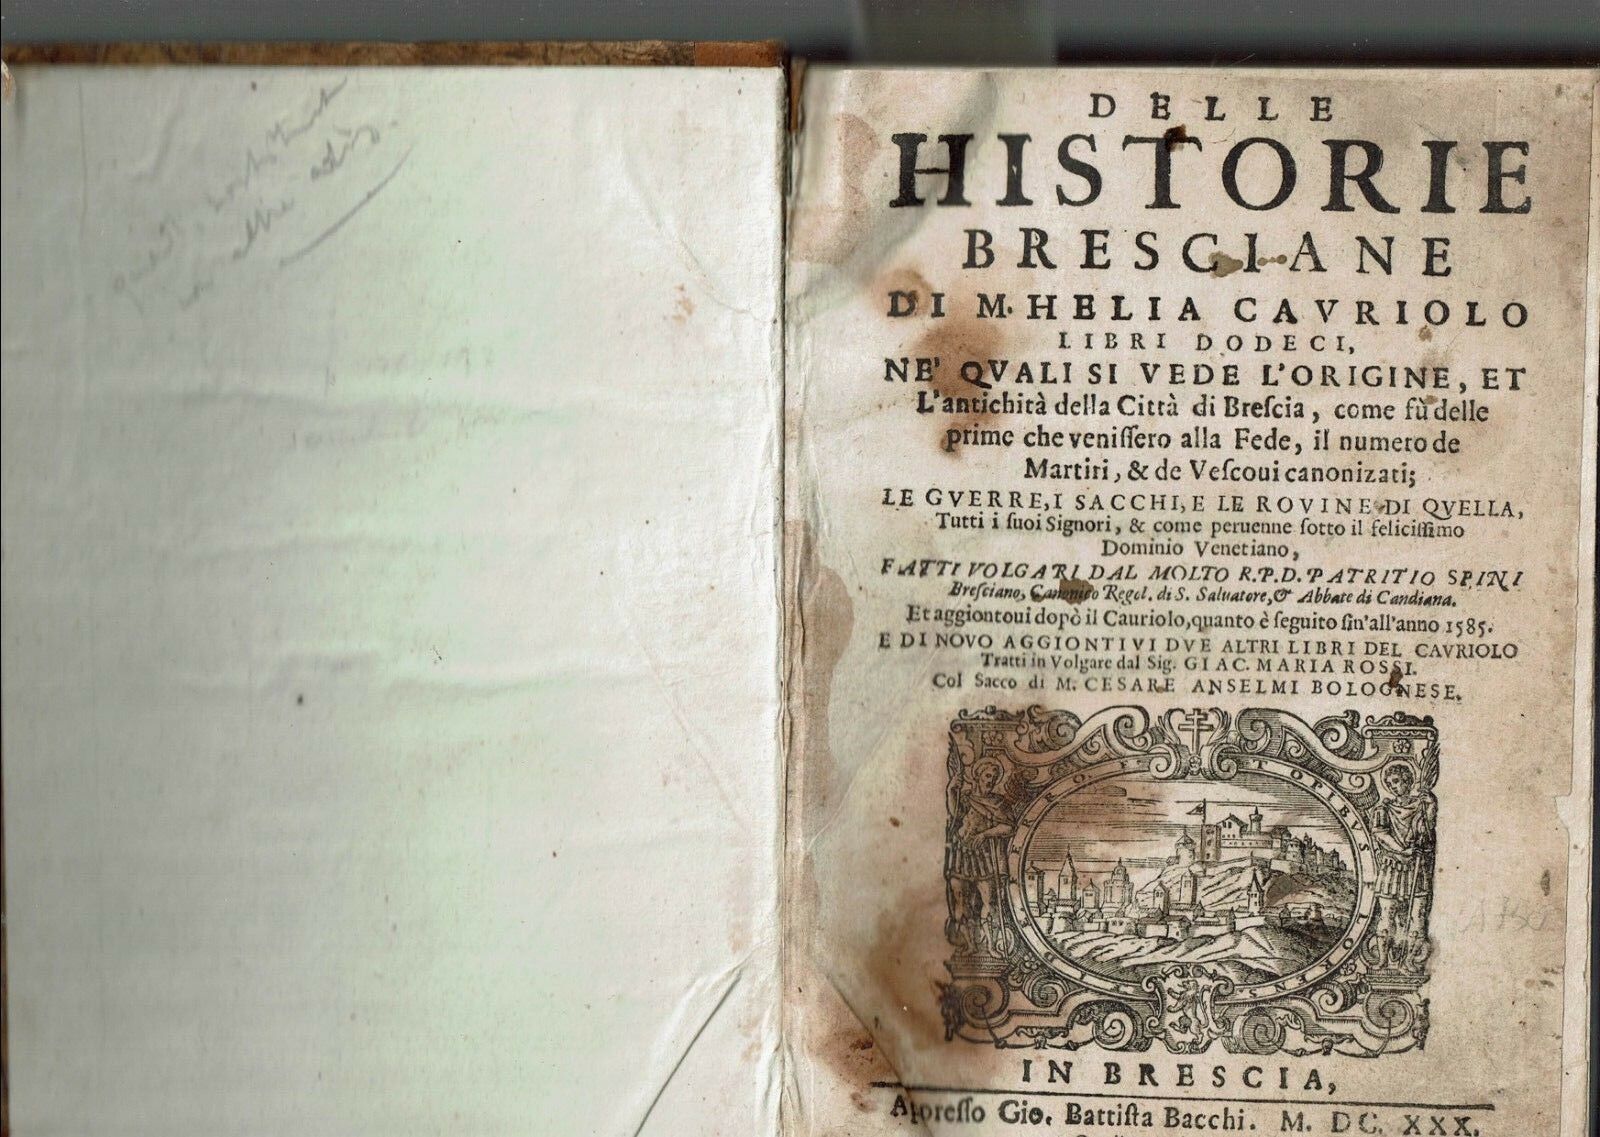 DELLE
HISTORIE
BRESCIANE
DI M. HELIA CAVRIOLO
LIBRI DODECI,
NE' QVALI SI VEDE L'ORIGINE, ET
L'antichità della Città di Breſcia, come fù delle
prime che veniſſero alla Fede, il numero de
Martiri, & de Veſcoui canonizati;
LE GVERRE, I SACCHI, E LE ROVINE DI QVELLA,
Tutti i ſuoi Signori, & come peruenne ſotto il feliciſſimo
Dominio Venetiano,
FATTI VOLGARI DAL MOLTO R.P.D. PATRITIO SPINI
Breſciano, Canonico Regol. di S. Saluatore, & Abbate di Candiana.
Et aggiontoui dopò il Cauriolo, quanto è ſeguito ſin'all'anno 1585.
E DI NOVO AGGIONTIVI DVE ALTRI LIBRI DEL CAVRIOLO
Tratti in Volgare dal Sig. GIAC. MARIA ROSSI.
Col Sacco di M. CESARE ANSELMI BOLOGNESE.
IN BRESCIA,
Appreſſo Gio. Battiſta Bacchi. M. DC. XXX.